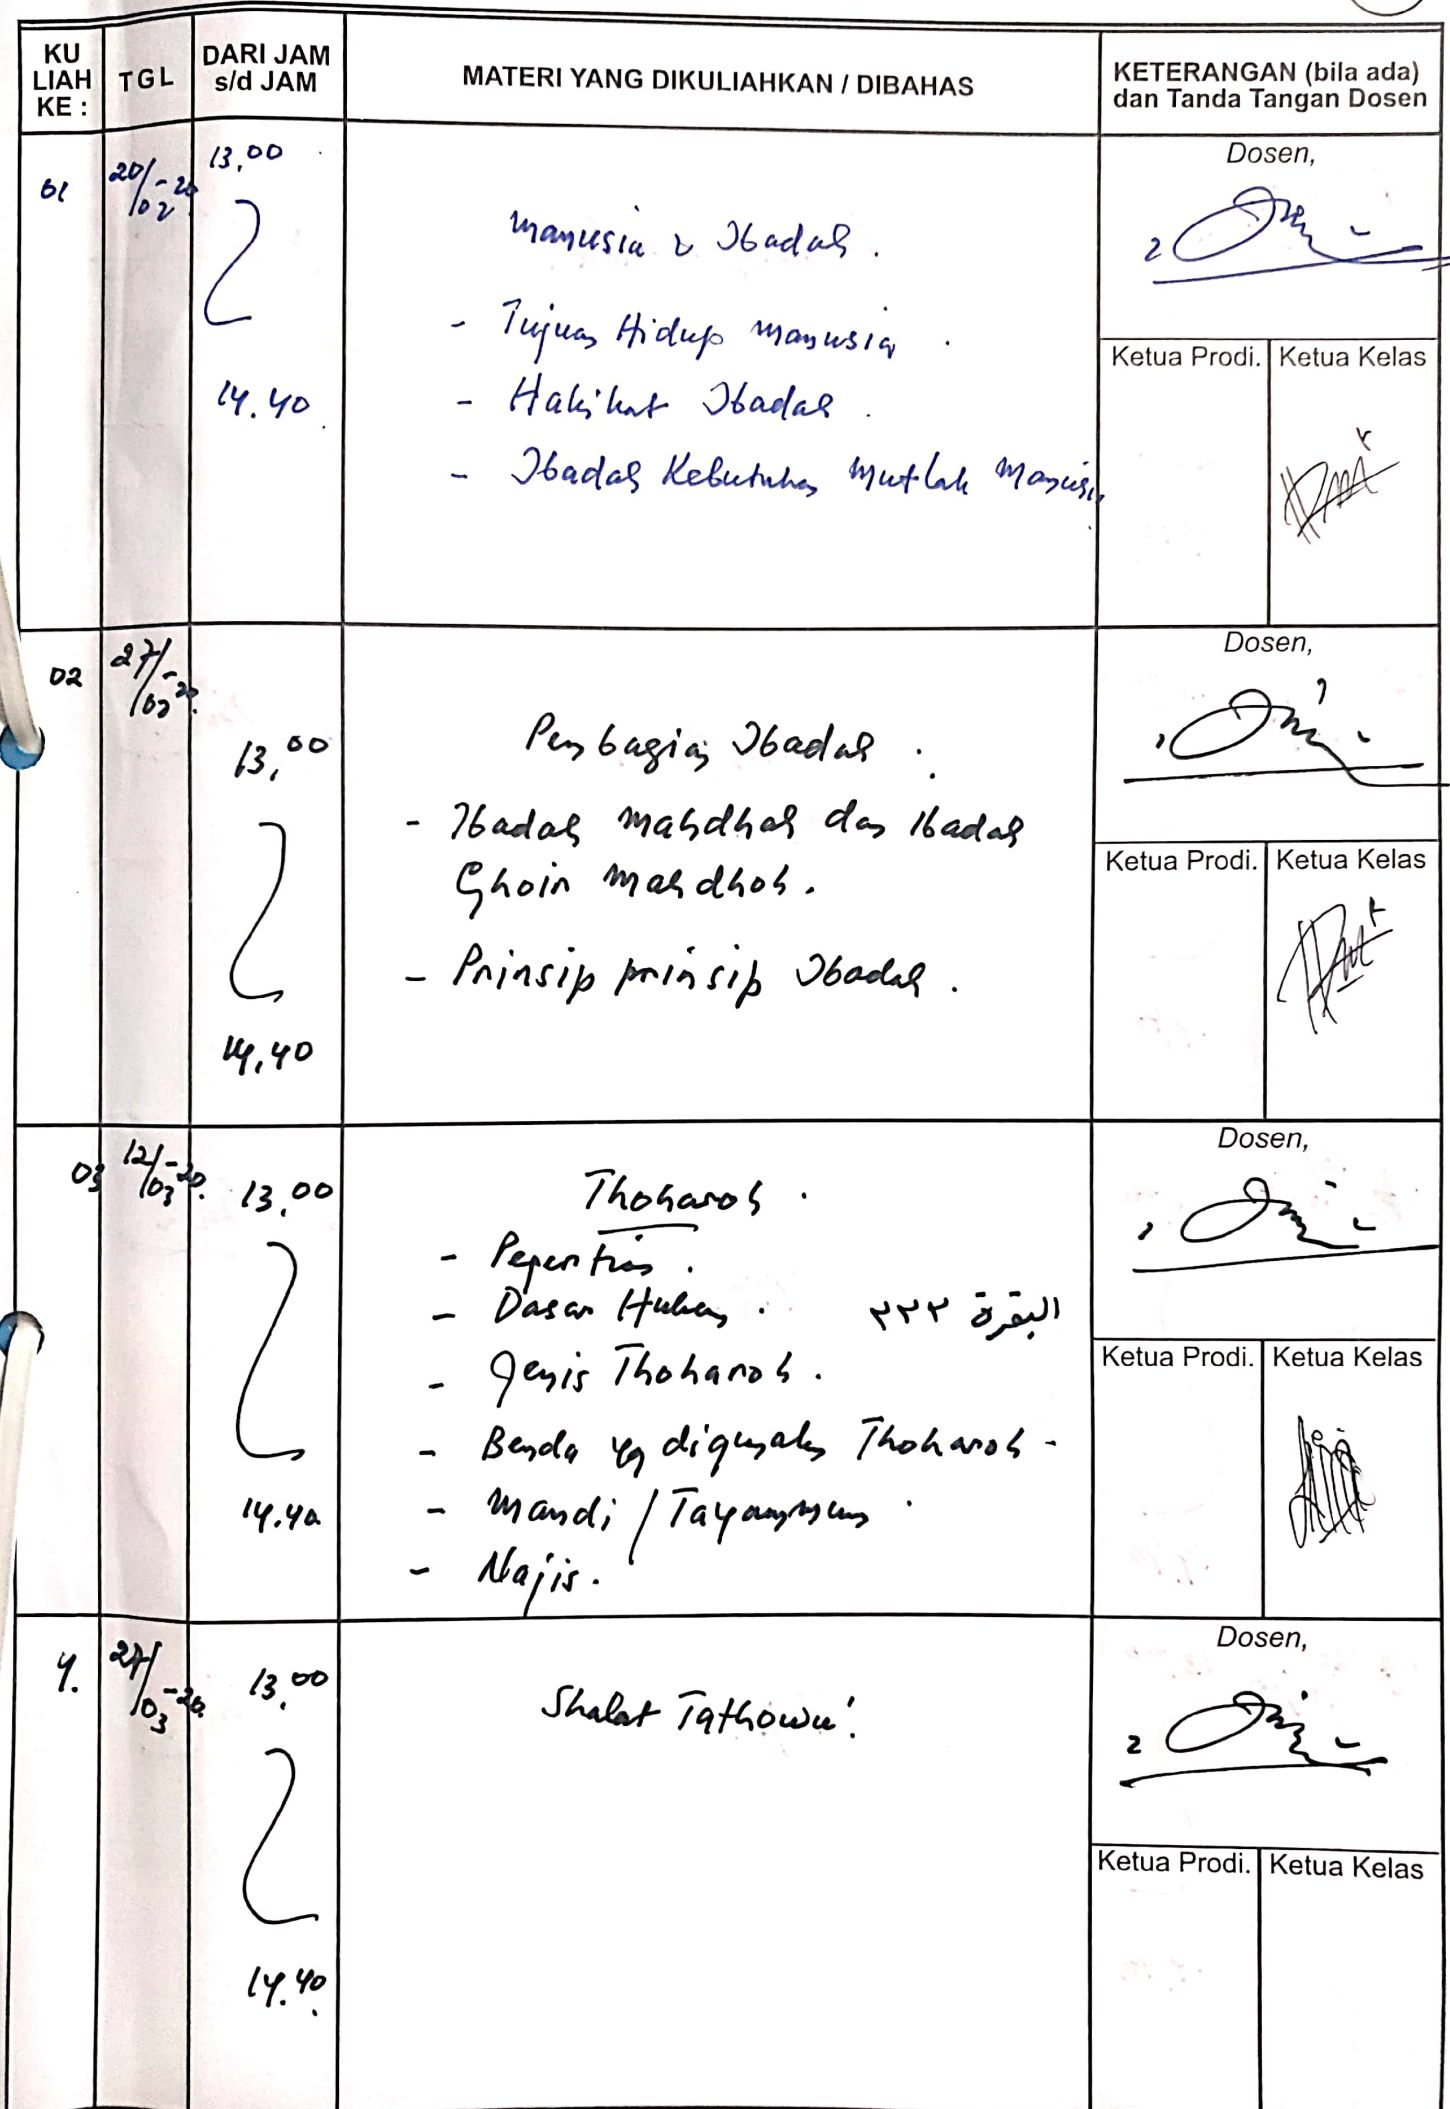 KU LIAH KE :
TGL
DARI JAM s/d JAM
MATERI YANG DIKULIAHKAN / DIBAHAS
KETERANGAN (bila ada) dan Tanda Tangan Dosen
01
20/02-20
13.00
14.40
Manusia & Ibadah.
- Tujuan Hidup manusia.
- Hakikat Ibadah.
- Ibadah Kebutuhan Mutlak Manusia
Dosen,
Ketua Prodi.
Ketua Kelas
02
27/02-20.
13.00
14.40
Pembagian Ibadah.
- Ibadah Mahdhah dan Ibadah
Ghoir Mahdhoh.
- Prinsip prinsip Ibadah.
Dosen,
Ketua Prodi.
Ketua Kelas
03
12/03-20.
13.00
14.40
Thoharoh.
- Pegertian.
- Dasar Hukum. البقرة ٢٢٢
- Jenis Thoharoh.
- Benda yg digunakan Thoharoh-
- Mandi / Tayammum.
- Najis.
Dosen,
Ketua Prodi.
Ketua Kelas
4.
27/03-20
13.00
14.40.
Shalat Tathowu'.
Dosen,
Ketua Prodi.
Ketua Kelas